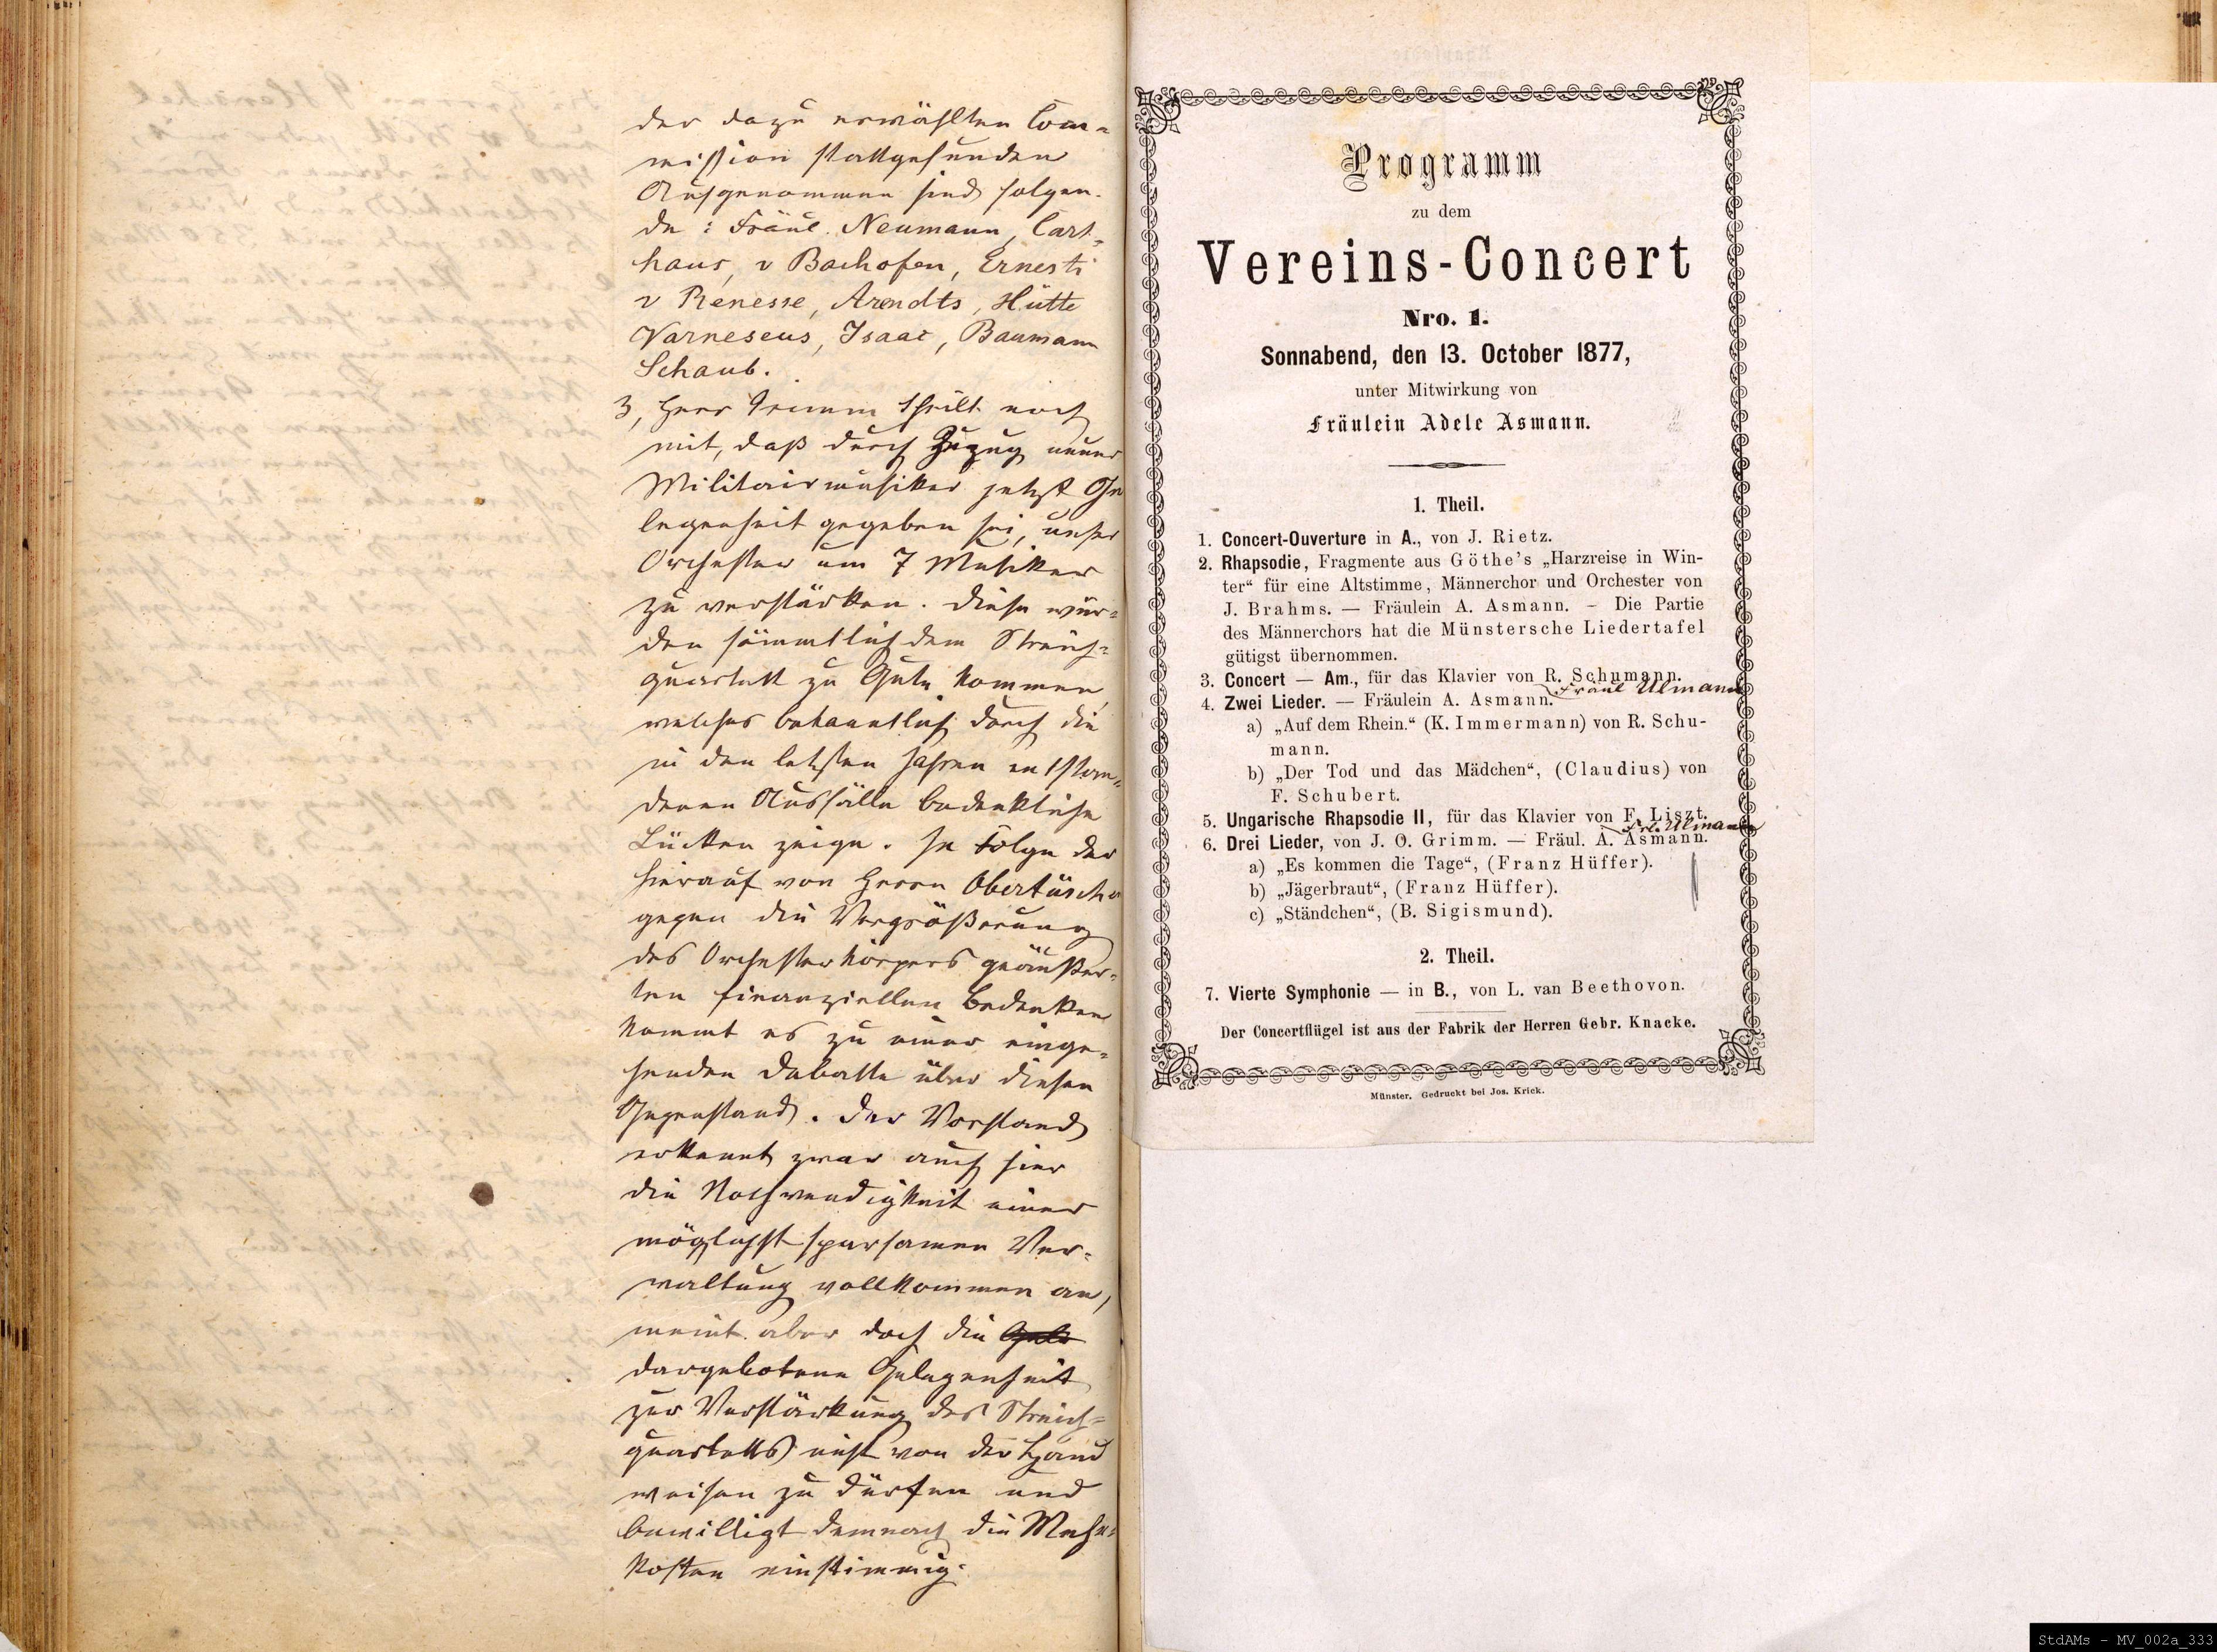 der dazu erwählten Com-
mission stattgefunden
Aufgenommen sind folgen-
de: Fräul. Neumann, Cart-
haus, v Bachofen, Ernesti
v Renesse, Arendts, Hütte
Varneseus, Isaac, Baumann
Schaub.
3, Herr Grimm theilt noch
mit, daß durch Zuzug neuer
Militairmusiker jetzt Ge
legenheit gegeben sei, unser
Orchester um 7 Musiker
zu verstärken. Diese wür-
den sämmtlich dem Streich-
quartett zu Gute kommen,
welches bekanntlich durch die
in den letzten Jahren entstan-
denen Ausfälle bedenkliche
Lücken zeige. In Folge der
hierauf von Herrn Obertüsche
gegen die Vergrößerung
des Orchesterkörpers geäußer-
ten finanziellen Bedenken
kommt es zu einer einge-
henden Debatte über diesen
Gegenstand. Der Vorstand
erkennt zwar auch hier
die Nothwendigkeit einer
möglichst sparsamen Ver-
waltung vollkommen an,
meint aber doch die
dargebotene Gelegenheit
zur Verstärkung des Streich-
quartetts nicht von der Hand
weisen zu dürfen und
bewilligt demnach die Mehr-
kosten einstimmig.
Programm
zu dem
Vereins-Concert
Nro. 1.
Sonnabend, den 13. October 1877,
unter Mitwirkung von
Fräulein Adele Asmann.
1. Theil.
1. Concert-Ouverture in A., von J. Rietz.
2. Rhapsodie, Fragmente aus Göthe's „Harzreise in Win-
ter“ für eine Altstimme, Männerchor und Orchester von
J. Brahms. — Fräulein A. Asmann. – Die Partie
des Männerchors hat die Münstersche Liedertafel
gütigst übernommen.
3. Concert — Am., für das Klavier von R. Schumann.
Fräul Ulmann
4. Zwei Lieder. — Fräulein A. Asmann.
a) „Auf dem Rhein.“ (K. Immermann) von R. Schu-
mann.
b) „Der Tod und das Mädchen“, (Claudius) von
F. Schubert.
5. Ungarische Rhapsodie II, für das Klavier von F. Liszt.
Frl. Ulmann
6. Drei Lieder, von J. O. Grimm. — Fräul. A. Asmann.
a) „Es kommen die Tage“, (Franz Hüffer).
b) „Jägerbraut“, (Franz Hüffer).
c) „Ständchen“, (B. Sigismund).
2. Theil.
7. Vierte Symphonie — in B., von L. van Beethovon.
Der Concertflügel ist aus der Fabrik der Herren Gebr. Knacke.
Münster. Gedruckt bei Jos. Krick.
StdAMs - MV_002a_333